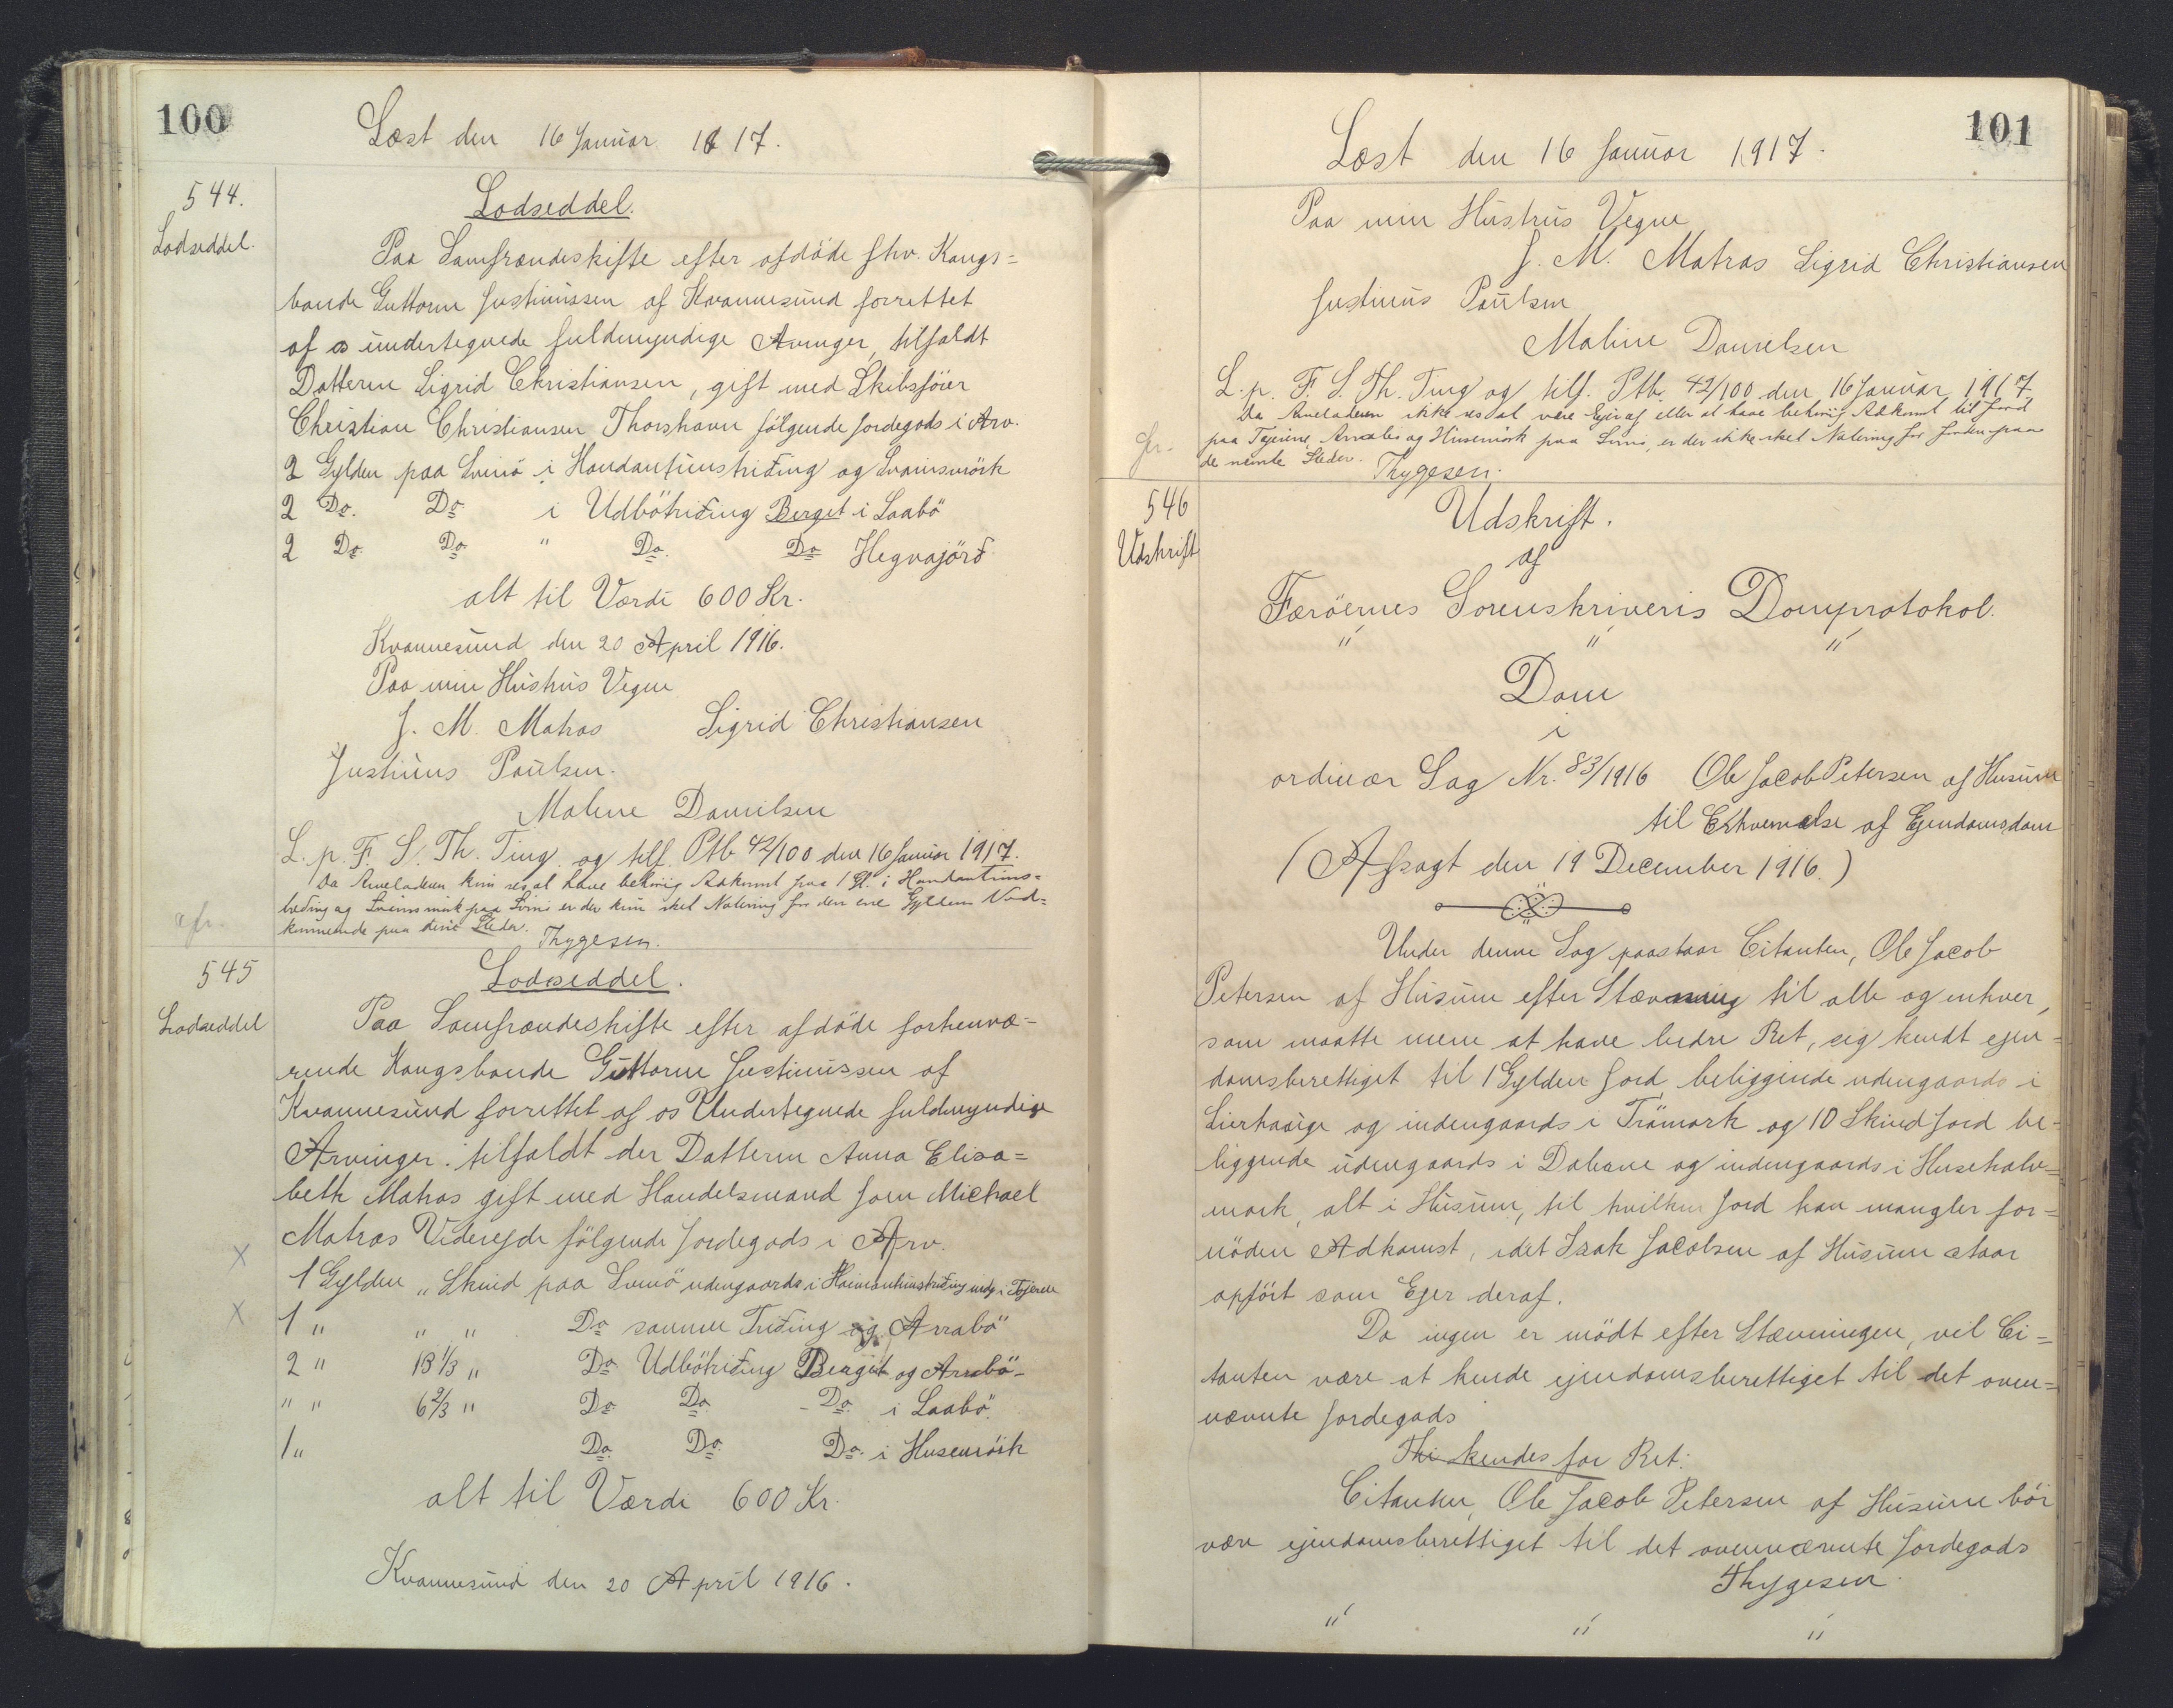 100
Læst den 16 Januar 1917.
544.
Lodseddel.
Lodseddel.
Paa Samfrændeskifte efter afdöde fhv. Kongs=
bonde Guttorm Justinussen af Kvannesund forrettet
af os undertegnede fuldmyndige Arvinger, tilfaldt
Datteren Sigrid Christiansen, gift med Skibsföier
Christian Christiansen Thorshavn fölgende Jordegods i Arv.
2 Gylden paa Svinö i Handantunstriðing og Svainsmörk
2 Do. Do i Udbötriðing Berget i Laabö
2 Do Do " Do. Do Hegnajörð
alt til Værdi 600 Kr.
Kvannesund den 20 April 1916.
Paa min Hustrus Vegne
J. M. Matras Sigrid Christiansen
Justinus Poulsen.
Maline Danielsen
L. p. F. S. Th. Ting og tilf. Ptb 42/100 den 16 Januar 1917.
Da Arveladeren kun ses at have behörig Adkomst paa 1 Gl. i Handantuns=
treðing og Sveinsmörk paa Svinö er der kun sket Notering for den ene Gylden Ved=
kommende paa disse Steder. Thygesen.
afr.
545
Lodseddel
Lodseddel.
Paa Samfrændeskifte efter afdöde forhenvæ-
rende Kongsbonde Guttorm Justinussen af
Kvannesund forrettet af os Undertegnede fuldmyndige
Arvinger. tilfaldt der Datteren Anna Elisa=
beth Matras gift med Handelsmand Joen Michael
Matras Viderejde fölgende Jordegods i Arv.
X 1 Gylden " Skind paa Svinö udengaards i Haimantunstriðing indg. i Tejerene
X 1 " " " Do samme Triðing og Arrabö"
2 " 13 1/3 " Do Udbötriðing Berget og Arrabö-
" " 6 2/3 " Do Do. - Do. i Laabö.
1 " Do. Do. Do. i Husemörk
alt til Værdi 600 Kr.
Kvannesund den 20 April 1916.
101
Læst den 16 Januar 1917.
Paa min Hustrus Vegne
J. M. Matras Sigrid Christiansen
Justinus Poulsen
Maline Danielsen
L. p. F. S. Th. Ting og tilf. Ptb. 42/100 den 16 Januar 1917
Da Arveladeren ikke ses at være Ejer af eller at have behörig Adkomst til Jord
paa Tejerene, Arrabö og Husemörk paa Svinö, er der ikke sket Notering for Jorden paa
de nævnte Steder. Thygesen.
546
Udskrift
Udskrift.
af
Færöernes Sorenskriveris Domprotokol.
" " "
Dom
i
ordinær Sag Nr. 83/1916 Ole Jacob Petersen af Husum
til Erhvervelse af Ejendomsdom
(Afsagt den 19 December 1916.)
Under denne Sag paastaar Citanten, Ole Jacob
Petersen af Husum efter Stævning til alle og enhver,
som maatte mene at have bedre Ret, sig kendt ejen=
domsberettiget til 1 Gylden Jord beliggende udengaards i
Lierhauge og indengaards i Trömork og 10 Skind Jord be=
liggende udengaards i Dalene og indengaards i Husehalv=
mark, alt i Husum, til hvilken Jord han mangler for=
nöden Adkomst, idet Isak Jacobsen af Husum staar
opfört som Ejer deraf.
Da ingen er mödt efter Stævningen, vil Ci=
tanten være at kende ejendomsberettiget til det oven=
nævnte Jordegods
Thi kendes for Ret:
Citanten, Ole Jacob Petersen af Husum bör
være ejendomsberettiget til det ovennævnte Jordegods
Thygesen.
" " "